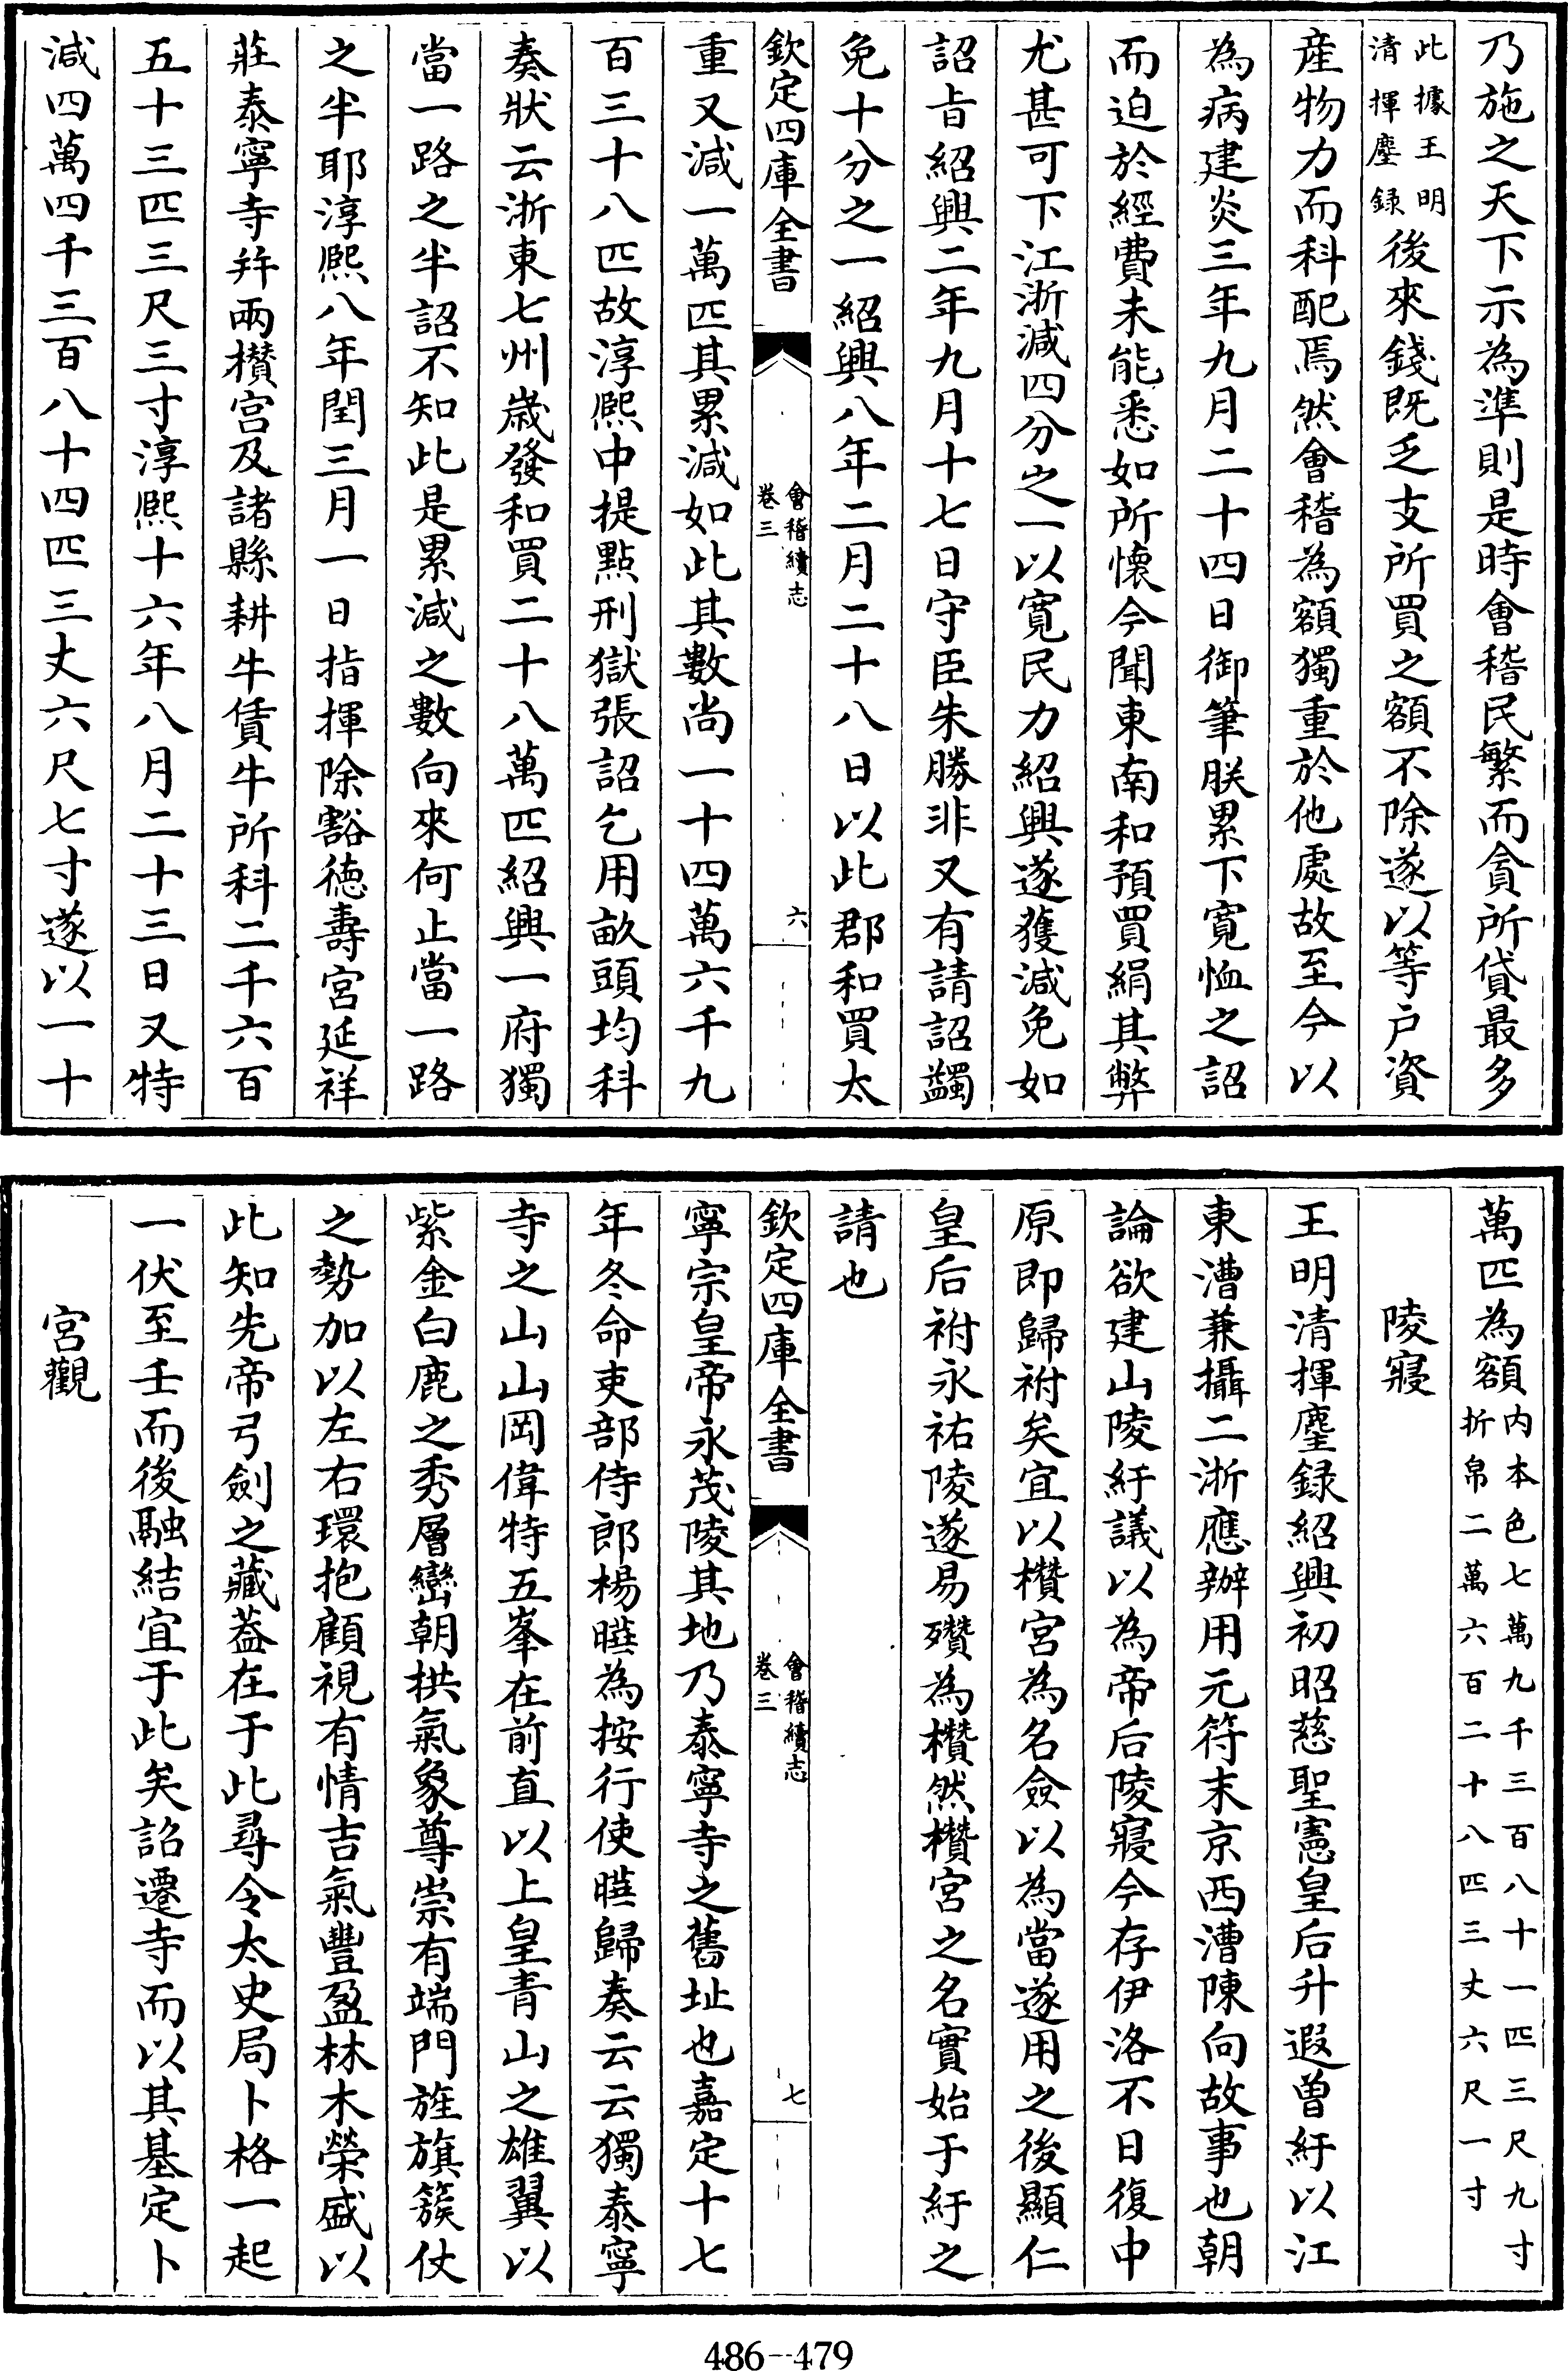 乃施之天下示為準則是時會稽民繁而貪所貸最多
此據王明
清揮麈録
後來錢既乏支所買之額不除遂以等户資
産物力而科配焉然會稽為額獨重於他處故至今以
為病建炎三年九月二十四日御筆朕累下寛恤之詔
而迫於經費未能悉如所懐今聞東南和預買絹其弊
尤甚可下江浙减四分之一以寛民力紹興遂獲减免如
詔㫖紹興二年九月十七日守臣朱勝非又有請詔蠲
免十分之一紹興八年二月二十八日以此郡和買太
欽定四庫全書
會稽續志
卷三
六
重又减一萬匹其累减如此其數尚一十四萬六千九
百三十八匹故淳熙中提點刑獄張詔乞用畝頭均科
奏狀云浙東七州歲發和買二十八萬匹紹興一府獨
當一路之半詔不知此是累减之數向來何止當一路
之半耶淳熙八年閏三月一日指揮除豁德壽宮延祥
莊泰寧寺并兩欑宫及諸縣耕牛賃牛所科二千六百
五十三匹三尺三寸淳熙十六年八月二十三日又特
減四萬四千三百八十四匹三丈六尺七寸遂以一十
萬匹為額
内本色七萬九千三百八十一匹三尺九寸
折帛二萬六百二十八匹三丈六尺一寸
陵寢
王明清揮麈録紹興初昭慈聖憲皇后升遐曽紆以江
東漕兼攝二浙應辦用元符末京西漕陳向故事也朝
論欲建山陵紆議以為帝后陵寢今存伊洛不日復中
原即歸祔矣宜以欑宮為名僉以為當遂用之後顯仁
皇后祔永祐陵遂易殯為欑然欑宮之名實始于紆之
請也
欽定四庫全書
會稽續志
卷三
七
寧宗皇帝永茂陵其地乃泰寧寺之舊址也嘉定十七
年冬命吏部侍郎楊暀為按行使暀歸奏云云獨泰寧
寺之山山岡偉特五峯在前直以上皇青山之雄翼以
紫金白鹿之秀層巒朝拱氣象尊崇有端門旌旗簇仗
之勢加以左右環抱顧視有情吉氣豐盈林木榮盛以
此知先帝弓劍之藏葢在于此尋令太史局卜格一起
一伏至壬而後融結宜于此矣詔遷寺而以其基定卜
宮觀
486--479